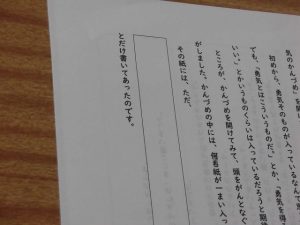 気のかんづめ」を開
初めから、勇気そのものが入っているなんて
ても、「勇気とはこういうものだ。」とか、「勇気を得
いい。」とかいうものくらいは入っているだろうと期待
ところが、かんづめを開けてみて、頭をがんとなぐ
がしました。かんづめの中には、便せん紙が一まい入っ
その紙には、ただ、
とだけ書いてあったのです。